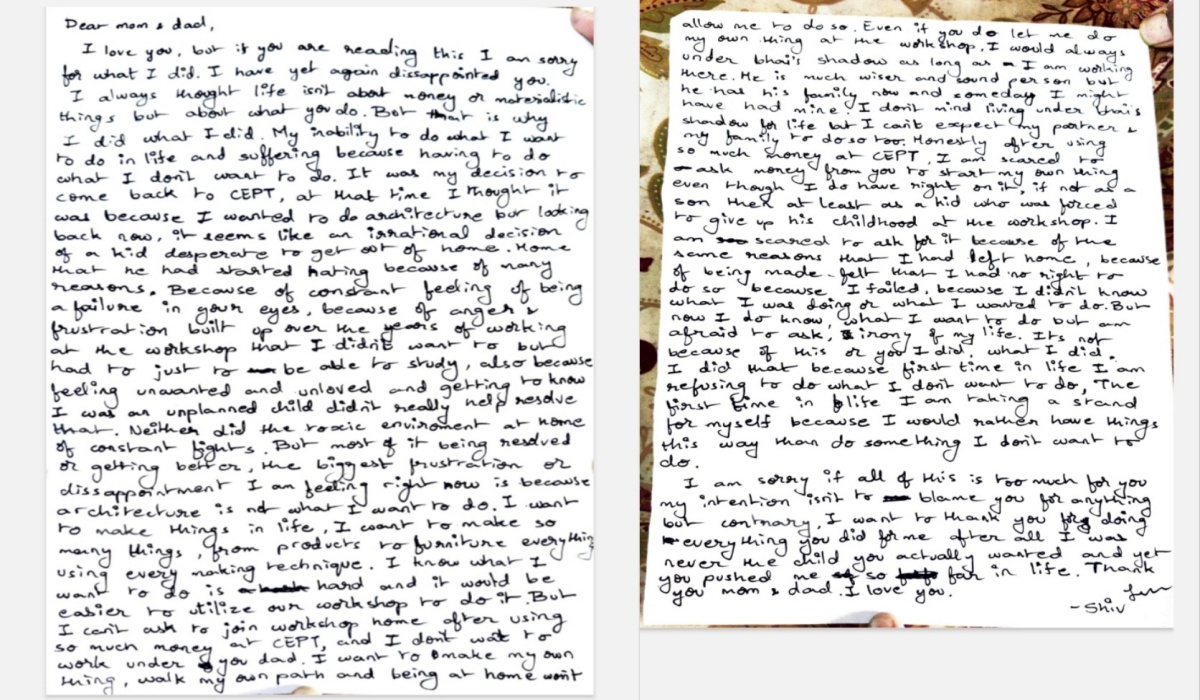 Dear mom & dad,
I love you, but if you are reading this I am sorry
for what I did. I have yet again dissappointed you.
I always thought life isn't about money or materialistic
things but about what you do. But that is why
I did what I did. My inability to do what I want
to do in life and suffering because having to do
what I don't want to do. It was my decision to
come back to CEPT, at that time I thought it
was because I wanted to do architecture but looking
back now, it seems like an irrational decision
of a kid desperate to get out of home. Home
that he had started hating because of many
reasons. Because of constant feeling of being
a failure in your eyes, because of anger &
frustration built up over the years of working
at the workshop that I didn't want to but
had to just to be able to study, also because
feeling unwanted and unloved and getting to know
I was an unplanned child didn't really help resolve
that. Neither did the toxic enviroment at home
of constant fights. But most of it being resolved
or getting better, the biggest frustration or
dissappointment I am feeling right now is because
architecture is not what I want to do. I want
to make things in life, I want to make so
many things, from products to furniture everything
using every making technique. I know what I
want to do is hard and it would be
easier to utilize our workshop to do it. But
I can't ask to join workshop home after using
so much money at CEPT, and I don't wat to
work under you dad. I want to make my own
thing, walk my own path and being at home won't
allow me to do so. Even if you do let me do
my own thing at the workshop, I would always
under bhai's shadow as long as I am working
there. He is much wiser and sound person but
he has his family now and someday I might
have had mine. I don't mind living under bhai's
shadow for life but I can't expect my partner &
my family to do so too. Honestly after using
so much money at CEPT, I am scared to
ask money from you to start my own thing
even though I do have right on it, if not as a
son then at least as a kid who was forced
to give up his childhood at the workshop. I
am scared to ask for it because of the
same reasons that I had left home, because
of being made felt that I had no right to
do so because I failed, because I didn't know
what I was doing or what I wanted to do. But
now I do know, what I want to do but am
afraid to ask, irony of my life. Its not
because of this or you I did, what I did.
I did that because first time in life I am
refusing to do what I don't want to do, The
first time in life I am taking a stand
for myself because I would rather have things
this way than do something I don't want to
do.
I am sorry if all of this is too much for you
my intention isn't to blame you for anything
but contrary, I want to thank you for doing
everything you did for me after all I was
never the child you actually wanted and yet
you pushed me so far in life. Thank
you mom & dad. I love you.
- Shiv